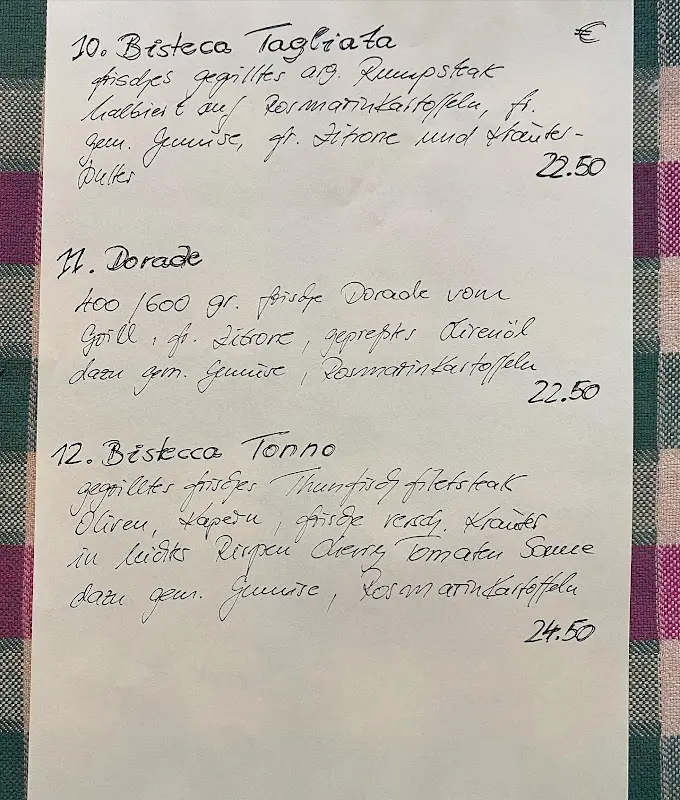 €
10. Bisteca Tagliata
frisches gegrilltes arg. Rumpsteak
halbiert auf Rosmarinkartoffeln, fr.
gem. Gemüse, fr. Zitrone und Kräuter-
butter
22.50
11. Dorade
400/600 gr. frische Dorade vom
Grill, fr. Zitrone, gepreßtes Olivenöl
dazu gem. Gemüse, Rosmarinkartoffeln
22.50
12. Bistecca Tonno
gegrilltes frisches Thunfischfiletsteak
Oliven, Kapern, frische versch. Kräuter
in leichter Rispen Cherry Tomaten Sauce
dazu gem. Gemüse, Rosmarinkartoffeln
24.50